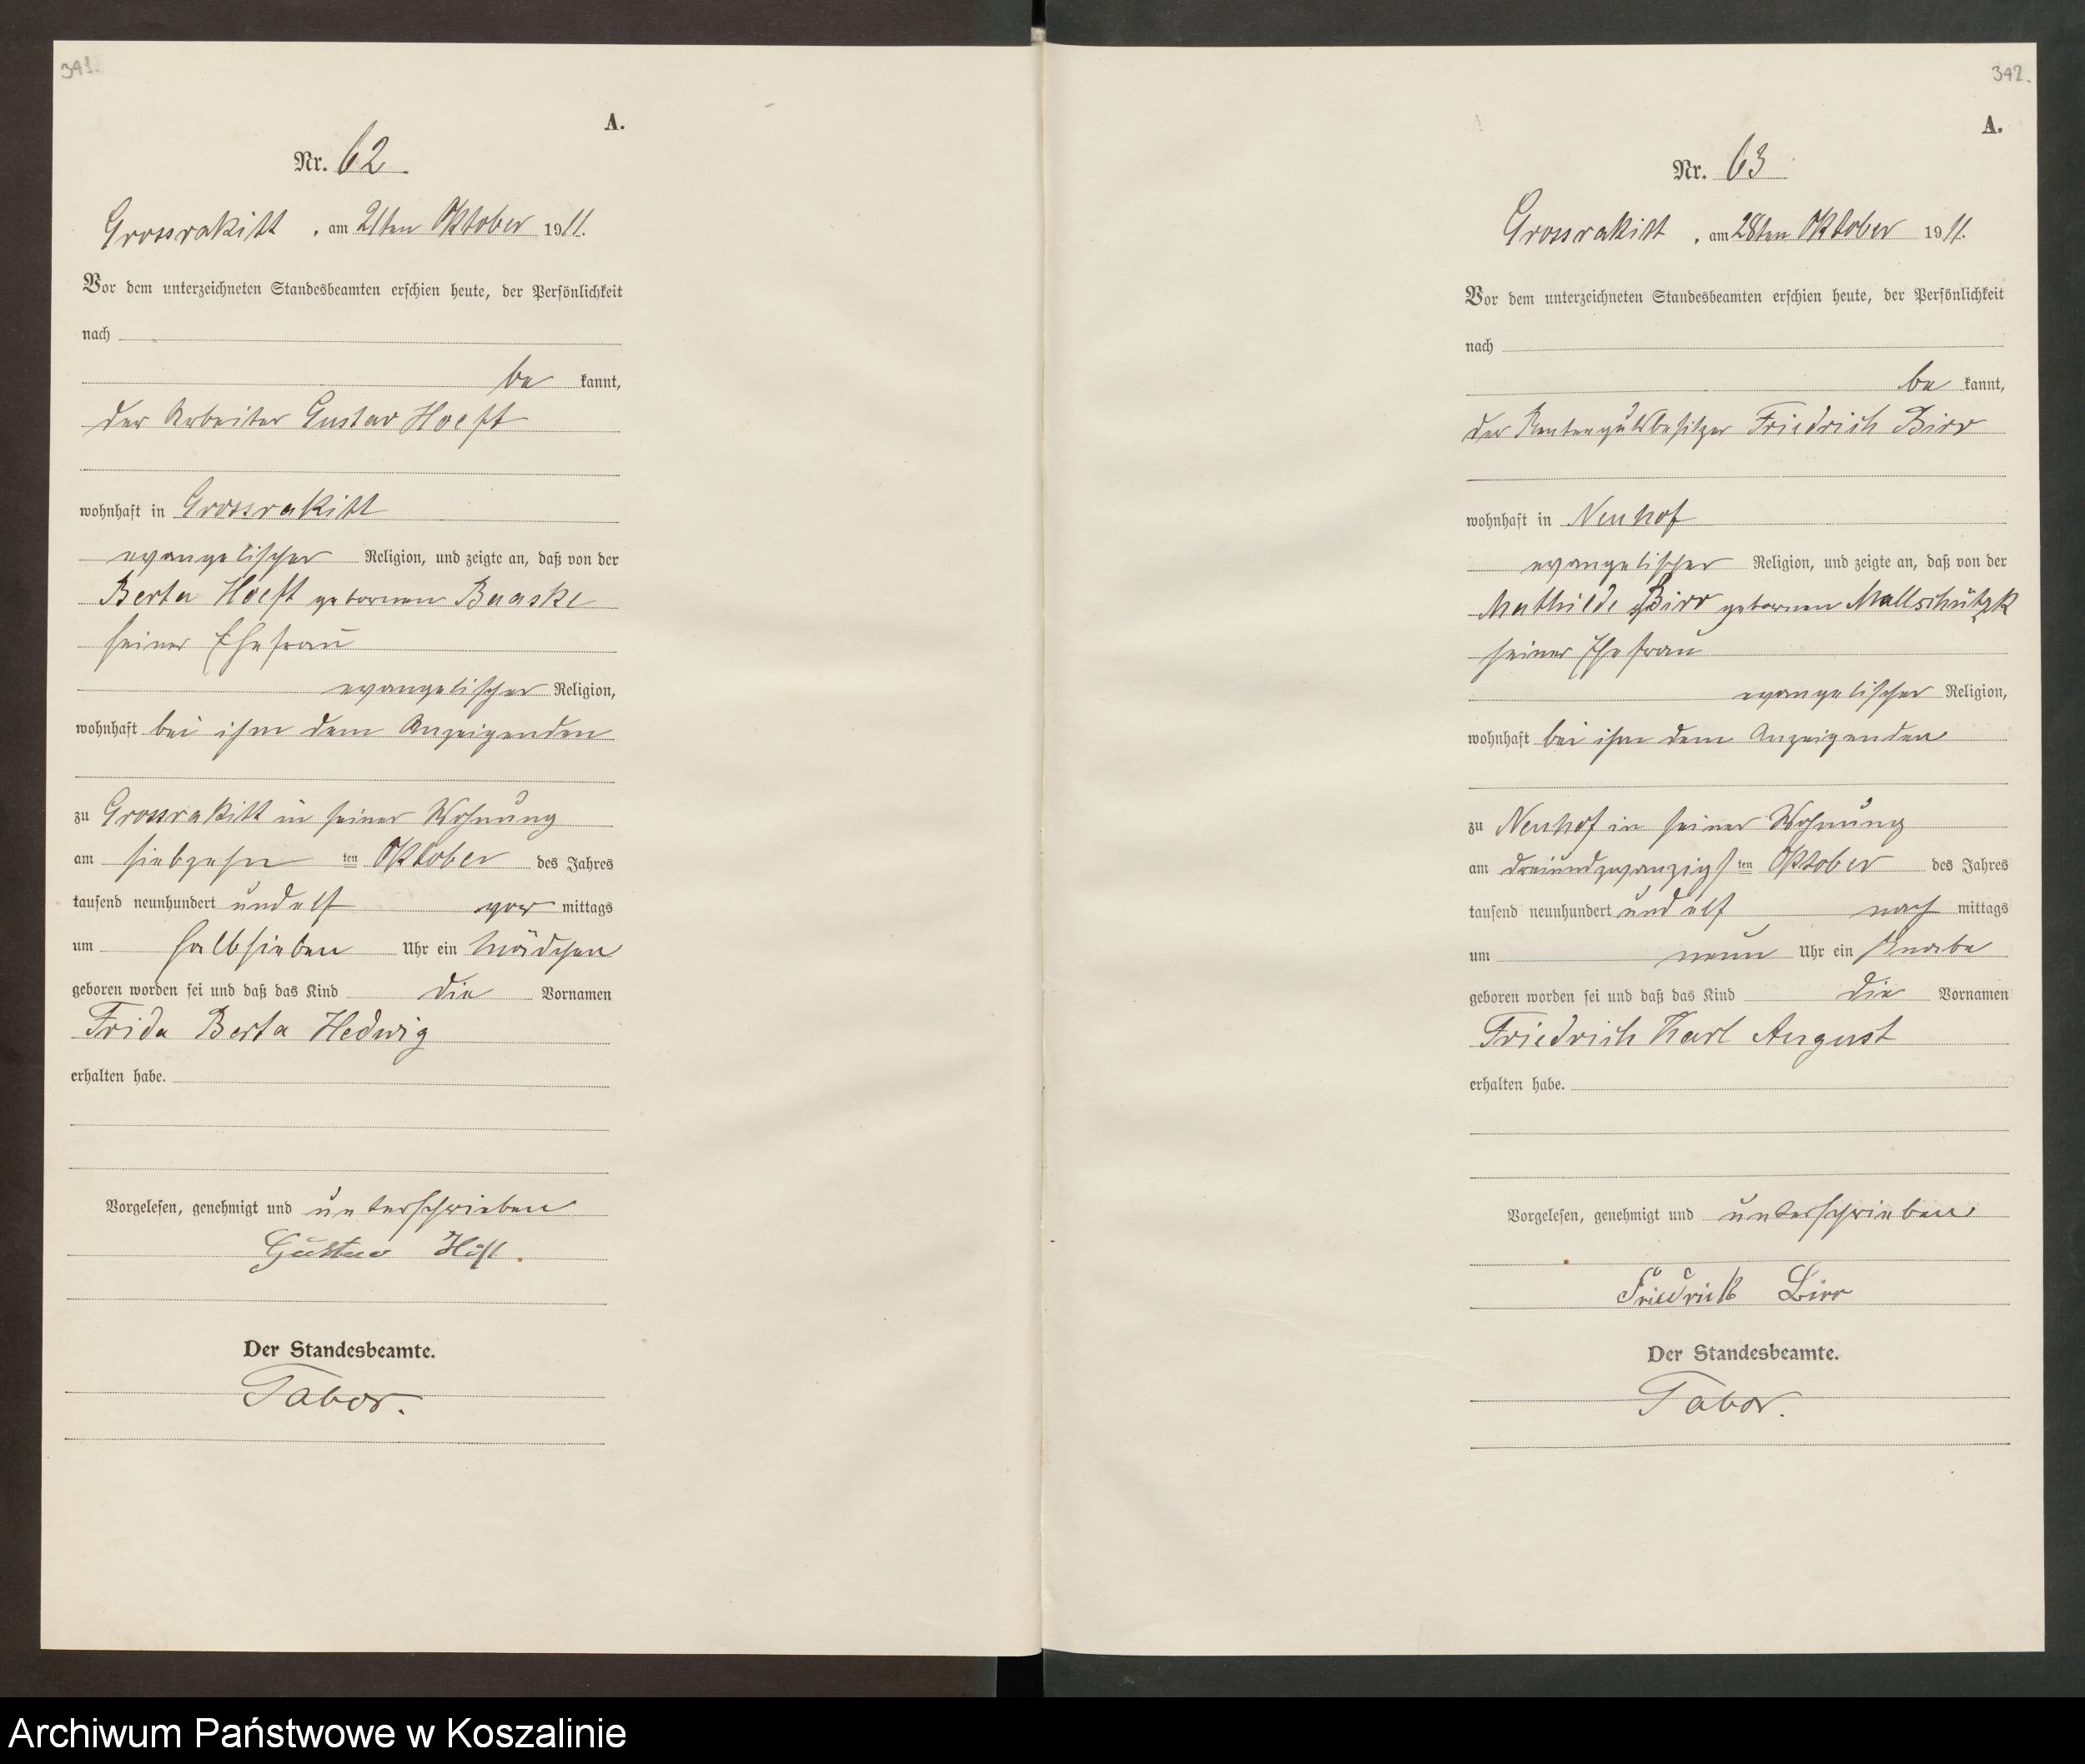 341.
A.
Nr. 62.
Grossrakitt, am 21ten Oktober 1911.
Vor dem unterzeichneten Standesbeamten erschien heute, der Persönlichkeit
nach
be kannt,
der Arbeiter Gustav Hoeft
wohnhaft in Grossrakitt
evangelischer Religion, und zeigte an, daß von der
Berta Hoeft geborenen Baaske
seiner Ehefrau
evangelischer Religion,
wohnhaft bei ihm dem Anzeigenden
zu Grossrakitt in seiner Wohnung
am siebzehn ten Oktober des Jahres
tausend neunhundert und elf vor mittags
um halbsieben Uhr ein Mädchen
geboren worden sei und daß das Kind die Vornamen
Frida Berta Hedwig
erhalten habe.
Vorgelesen, genehmigt und unterschrieben
Gustav Höft.
Der Standesbeamte.
Tabor.
342.
A.
Nr. 63
Grossrakitt, am 28ten Oktober 1911.
Vor dem unterzeichneten Standesbeamten erschien heute, der Persönlichkeit
nach
be kannt,
der Rentengutsbesitzer Friedrich Birr
wohnhaft in Neuhof
evangelischer Religion, und zeigte an, daß von der
Mathilde Birr geborenen Mallschützk
seiner Ehefrau
evangelischer Religion,
wohnhaft bei ihm dem Anzeigenden
zu Neuhof in seiner Wohnung
am dreiundzwanzigs ten Oktober des Jahres
tausend neunhundert und elf nach mittags
um neun Uhr ein Knabe
geboren worden sei und daß das Kind die Vornamen
Friedrich Karl August
erhalten habe.
Vorgelesen, genehmigt und unterschrieben
Friedrich Birr
Der Standesbeamte.
Tabor.
Archiwum Państwowe w Koszalinie